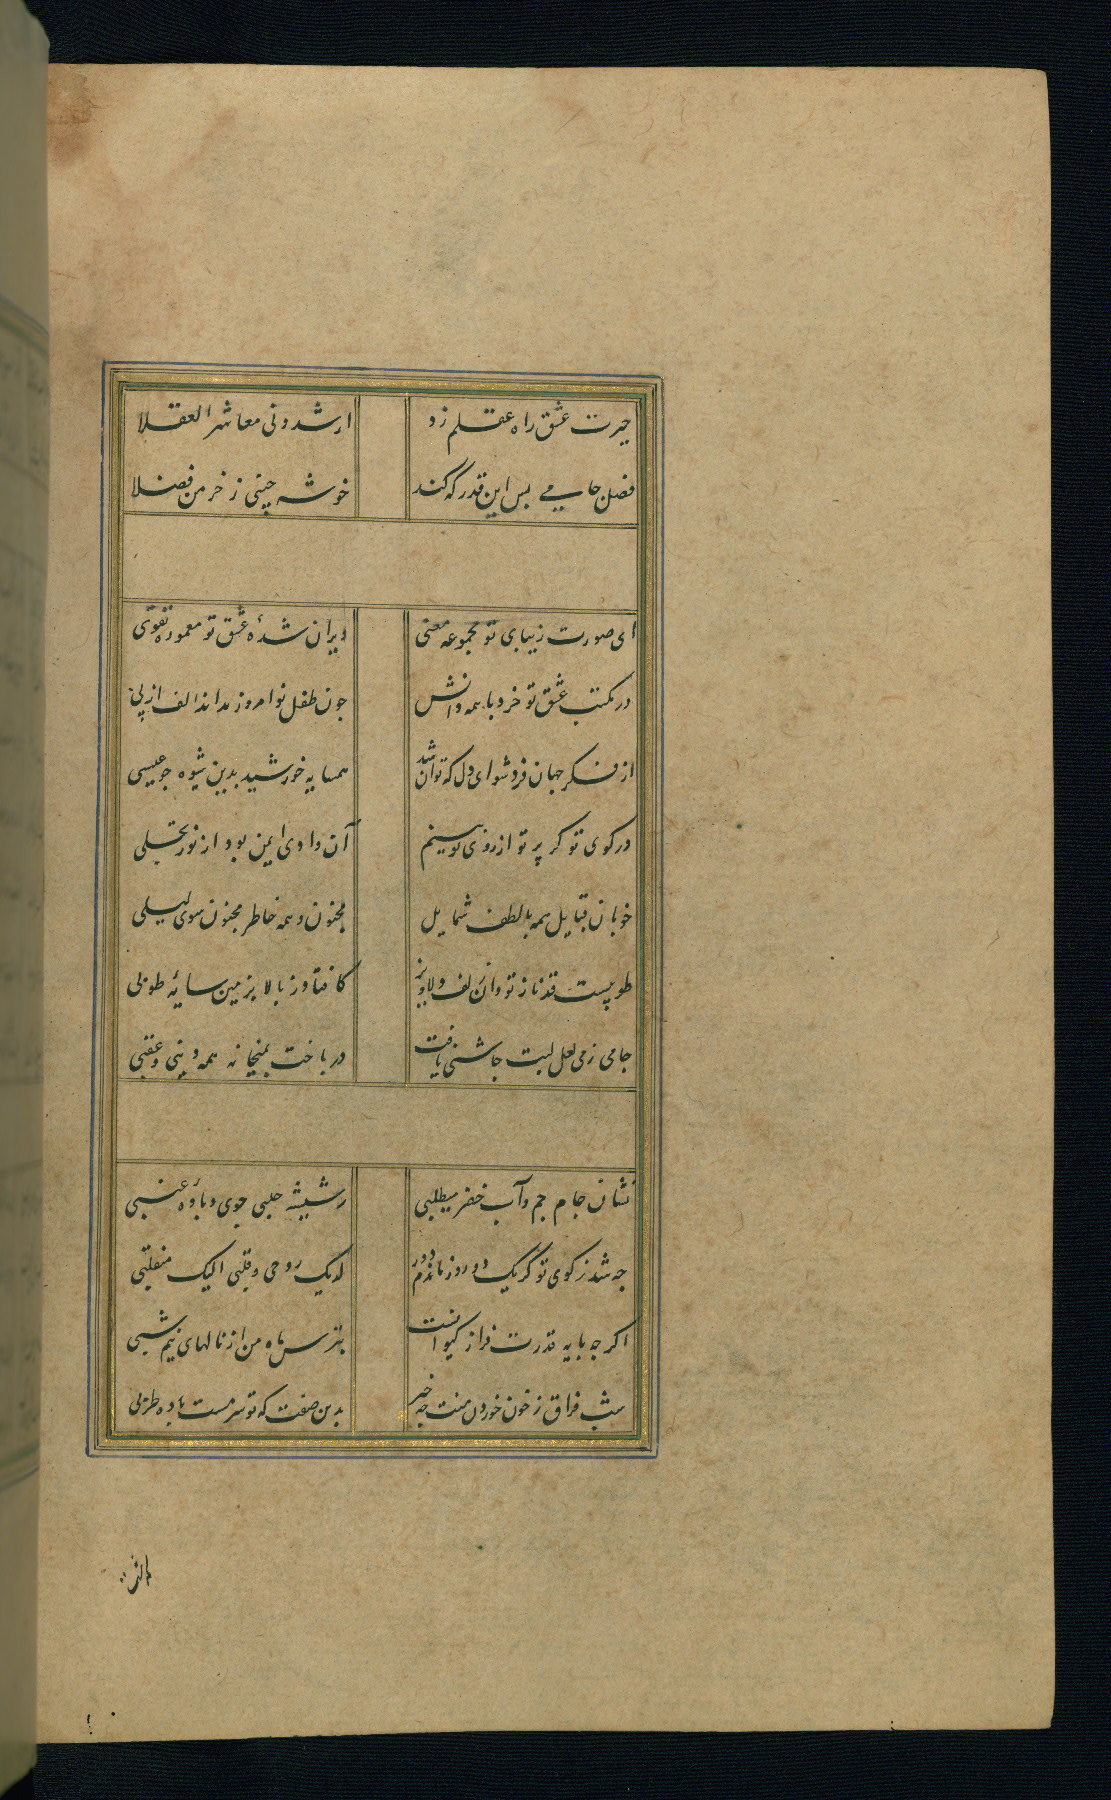 حیرت عشق راه عقلم زد ارشدونی معاشر العقلا
فضل جامی بس این قدر که کند خوشه چینی ز خرمن فضلا
ای صورت زیبای تو مجموعه معنی ویران شدهٔ عشق تو معموره تقوی
در مکتب عشق تو خرد با همه دانش چون طفل نوامروز نداند الف از بی
از فکر جهان فرد شو ای دل که توان شد همسایه خورشید بدین شیوه چو عیسی
در کوی تو کر پرتو از روی تو بینم آن وادی ایمن بود از نور تجلی
خوبان قبایل همه با لطف شمایل مجنون و همه خاطر مجنون سوی لیلی
طوبیست قد ناز تو وان زلف دلاویز کافتاد ز بالا بزمین سایهٔ طوبی
جامی ز می لعل لبت چاشنی یافت درباخت بمیخانه همه دینی و عقبی
نشان جام جم و آب خضر میطلبی ز شیشه حلبی جوی و بادهٔ عنبی
چه شد ز کوی تو کر یک دو روز ماندم دور لدیک روحی و قلبی الیک منقلبی
اکر چه پایه قدرت فراز کیوانست بترس ماه من از نالهای نیم شبی
شب فراق ز خون خوردن منت چه خبر بدین صفت که تو سرمست باده طربی